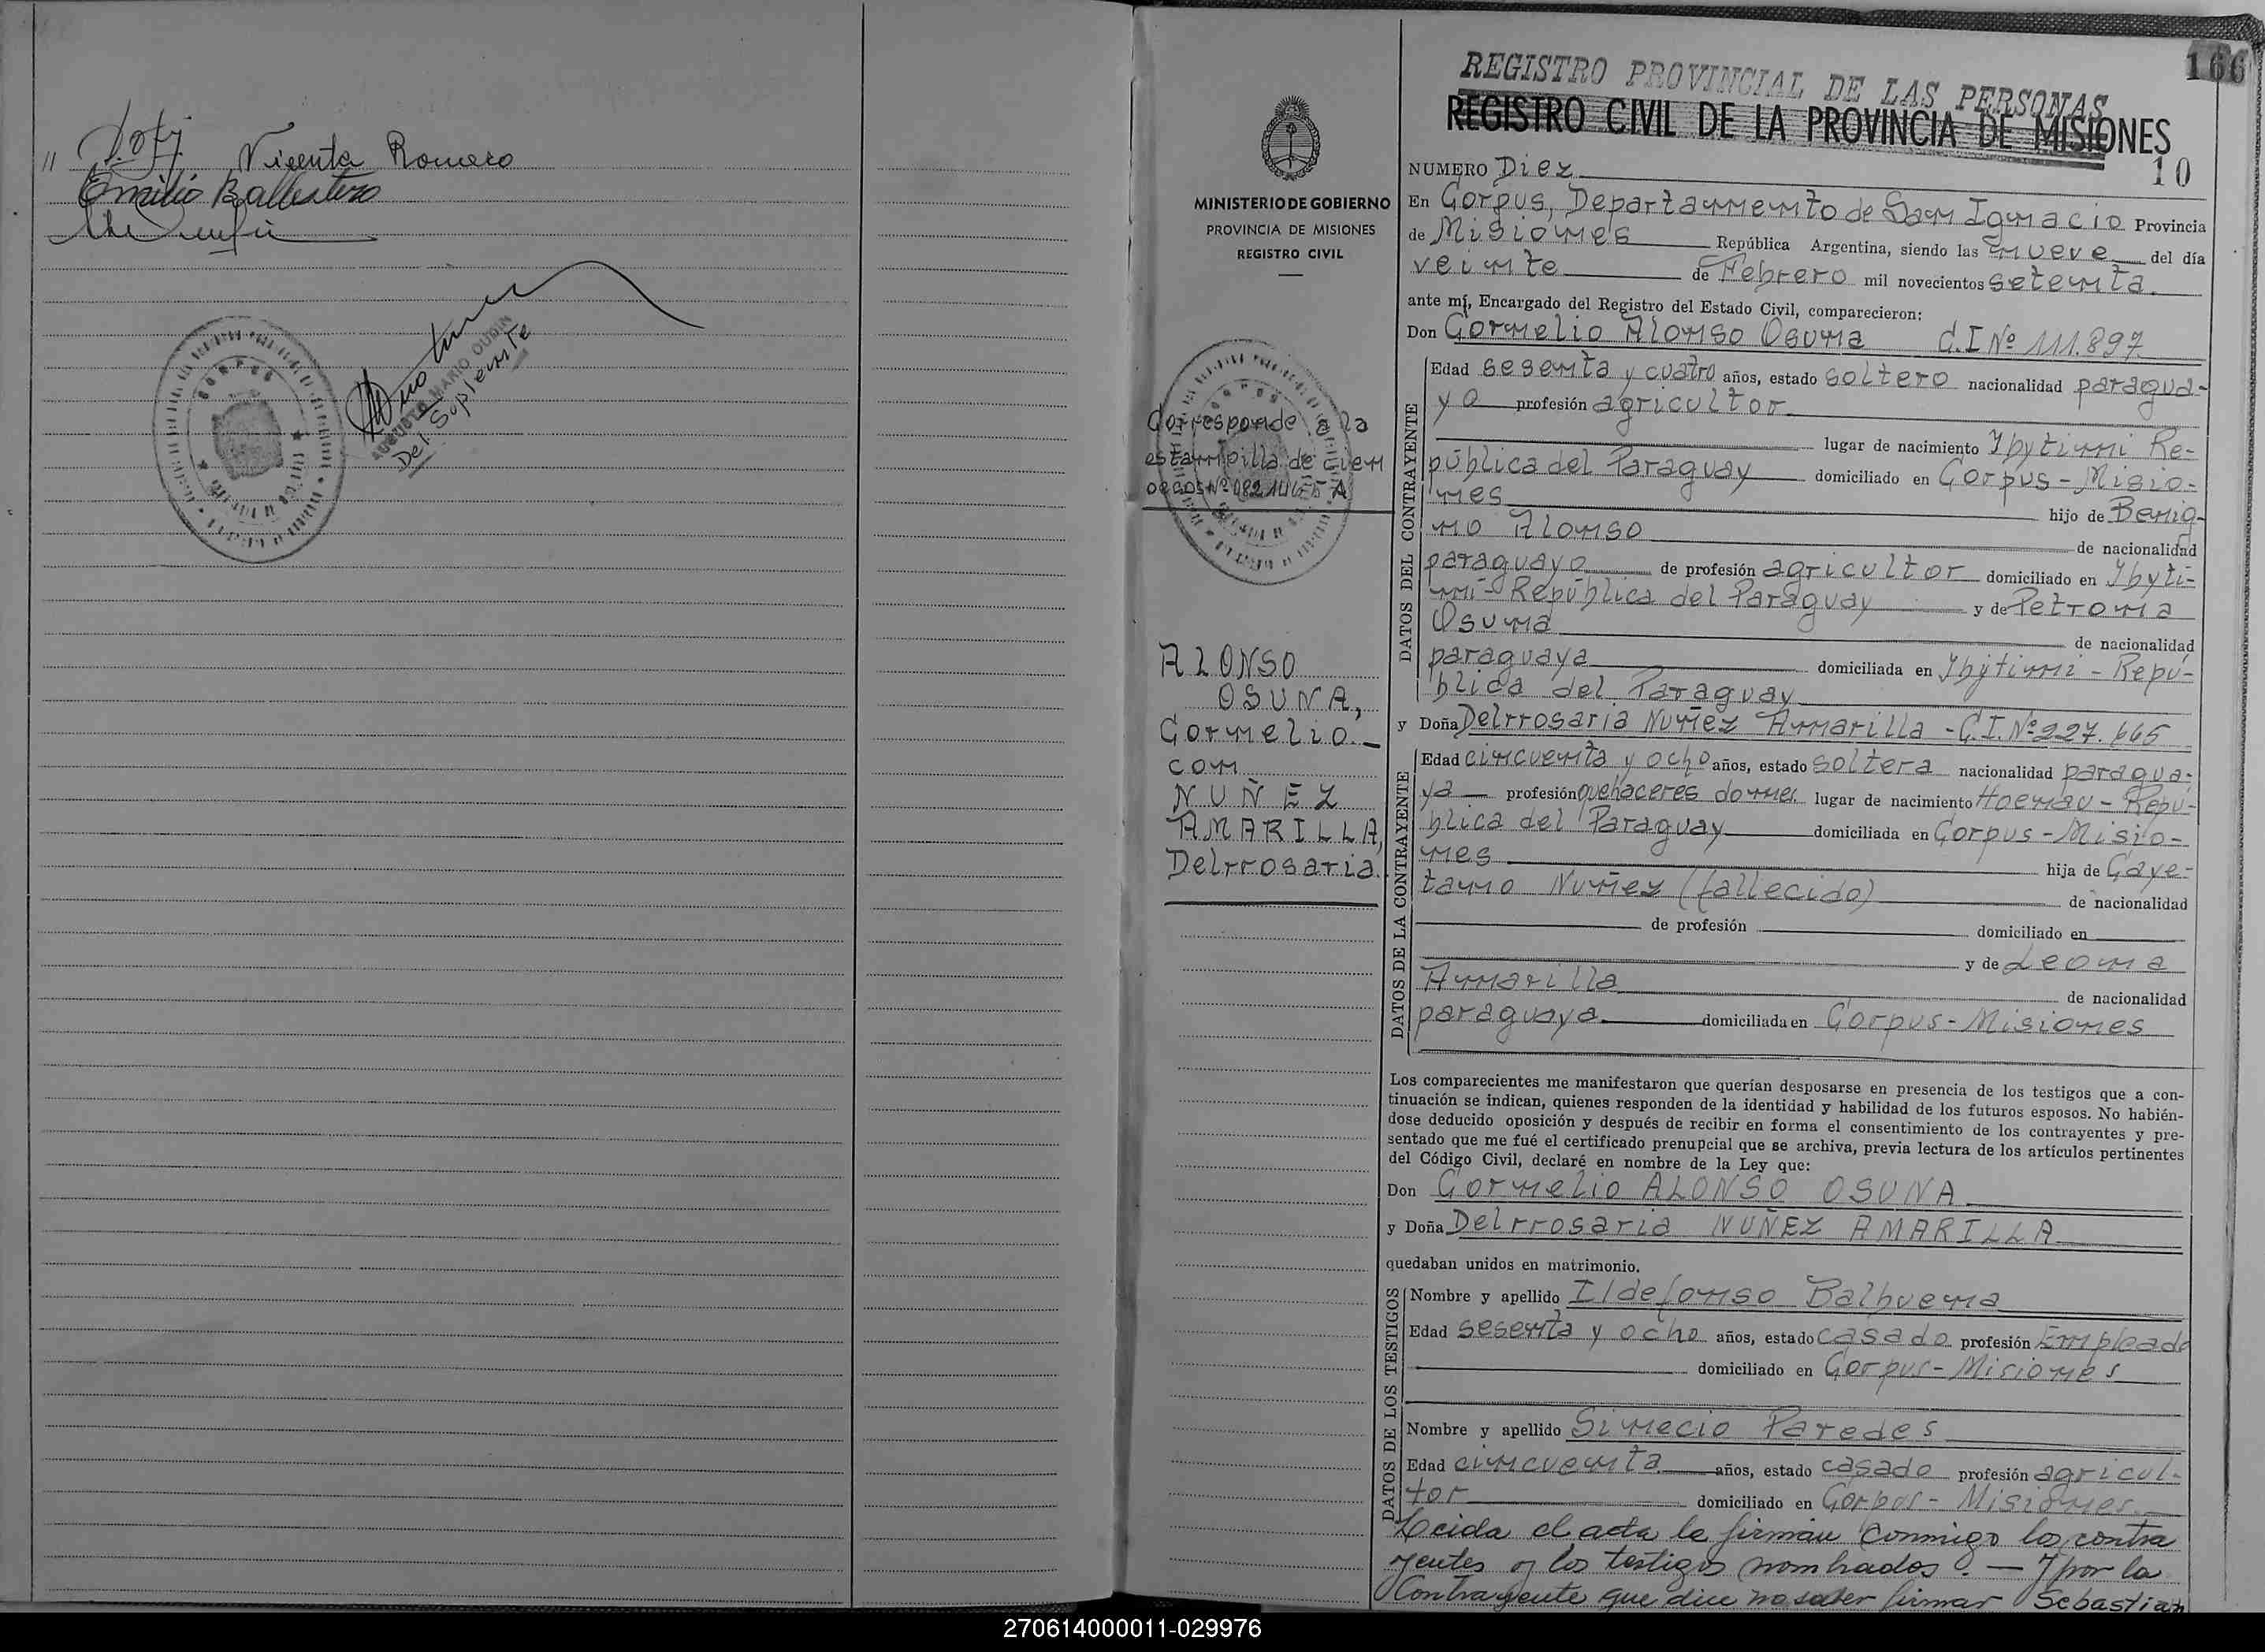 Vicenta Romero
Emilio Ballestero
AUGUSTO MARIO OUDIN
Del Suplente
166
REGISTRO PROVINCIAL DE LAS PERSONAS
REGISTRO CIVIL DE LA PROVINCIA DE MISIONES
10
MINISTERIO DE GOBIERNO
PROVINCIA DE MISIONES
REGISTRO CIVIL
Corresponde a la
estampilla de cien
pesos Nº
ALONSO
OSUNA,
Cornelio.-
con
NUÑEZ
AMARILLA,
Delrrosaria.
NUMERO Diez
En Corpus, Departamento de San Ignacio Provincia
de Misiones República Argentina, siendo las nueve del día
veinte de Febrero mil novecientos setenta.
ante mí, Encargado del Registro del Estado Civil, comparecieron:
Don Cornelio Alonso Osuna C.I Nº 111.897
DATOS DEL CONTRAYENTE
Edad sesenta y cuatro años, estado soltero nacionalidad paragua-
yo profesión agricultor
lugar de nacimiento Ybytimi Re-
pública del Paraguay domiciliado en Corpus - Misio-
nes hijo de Benig-
no Alonso de nacionalidad
paraguayo de profesión agricultor domiciliado en Ybyti-
mi - República del Paraguay y de Petrona
Osuna de nacionalidad
paraguaya domiciliada en Ybytimi - Repú-
blica del Paraguay
y Doña Delrrosaria Nuñez Amarilla - C.I. Nº 227.665
DATOS DE LA CONTRAYENTE
Edad cincuenta y ocho años, estado soltera nacionalidad paragua-
ya profesión quehaceres domes. lugar de nacimiento Hoenau - Repú-
blica del Paraguay domiciliada en Corpus - Misio-
nes hija de Caye-
tano Nuñez (fallecido) de nacionalidad
de profesión domiciliado en
y de Leona
Amarilla de nacionalidad
paraguaya domiciliada en Corpus - Misiones
Los comparecientes me manifestaron que querían desposarse en presencia de los testigos que a con-
tinuación se indican, quienes responden de la identidad y habilidad de los futuros esposos. No habién-
dose deducido oposición y después de recibir en forma el consentimiento de los contrayentes y pre-
sentado que me fué el certificado prenupcial que se archiva, previa lectura de los artículos pertinentes
del Código Civil, declaré en nombre de la Ley que:
Don Cornelio ALONSO OSUNA
y Doña Delrrosaria NUÑEZ AMARILLA
quedaban unidos en matrimonio.
DATOS DE LOS TESTIGOS
Nombre y apellido Ildefonso Balbuena
Edad sesenta y ocho años, estado casado profesión Empleado
domiciliado en Corpus - Misiones
Nombre y apellido Sinecio Paredes
Edad cincuenta años, estado casado profesión agricul-
tor domiciliado en Corpus - Misiones
Leida el acta la firman conmigo los contra
yentes y los testigos nombrados. — Y por la
Contrayente que dice no saber firmar Sebastian
270614000011-029976